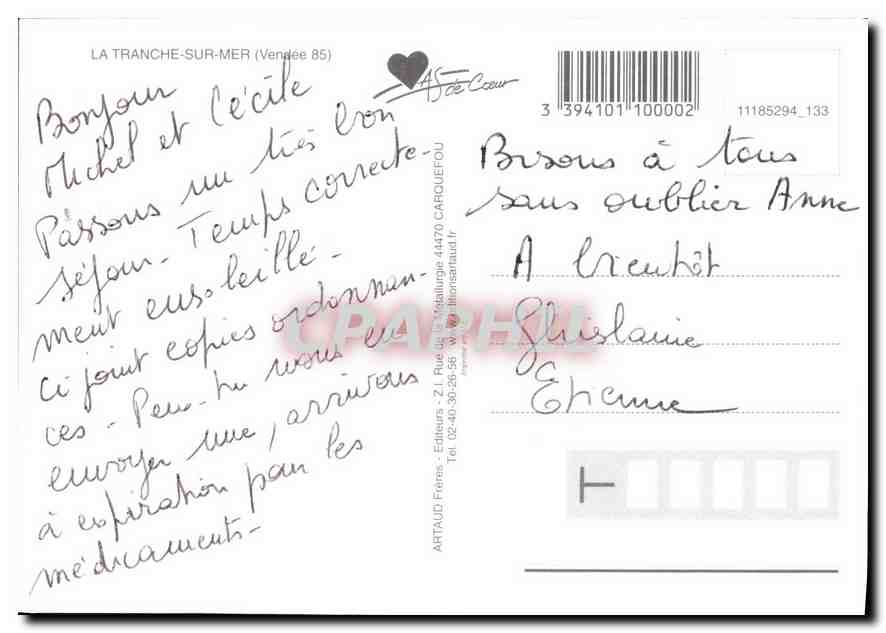 LA TRANCHE-SUR-MER (Vendée 85)
Bonjour
Michel et Cécile
Passons un très bon
séjour - Temps correcte-
ment ensoleillé -
Ci joint copies ordonnan-
ces - Peux-tu nous en
envoyer une, arrivons
à expiration pour les
médicaments -
As de Cœur
3 394101 100002
11185294_133
ARTAUD Frères - Editeurs - Z.I. Rue de la Métallurgie 44470 CARQUEFOU
Tel. 02-40-30-26-56 www.editionsartaud.fr
CPARHIL
Bisous à tous
sans oublier Anne
A bientôt
Ghislaine
Etienne